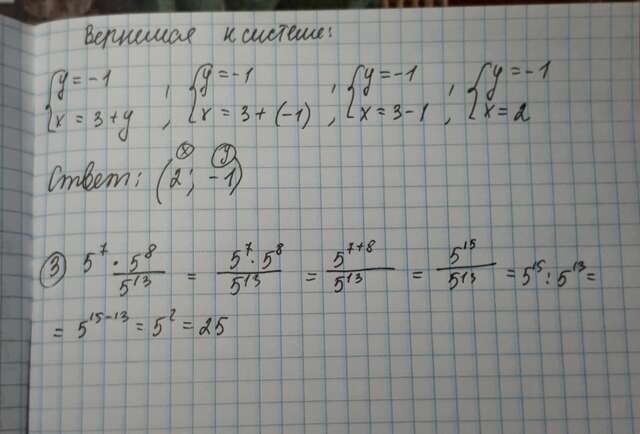 Вернемся к системе:
{y = -1 , {y = -1 , {y = -1 , {y = -1
{x = 3 + y , {x = 3 + (-1) , {x = 3 - 1 , {x = 2
Ответ: (2; -1)
x y
③ 5^7 · 5^8/5^13 = 5^7 · 5^8/5^13 = 5^(7+8)/5^13 = 5^15/5^13 = 5^15 : 5^13 =
= 5^(15-13) = 5^2 = 25